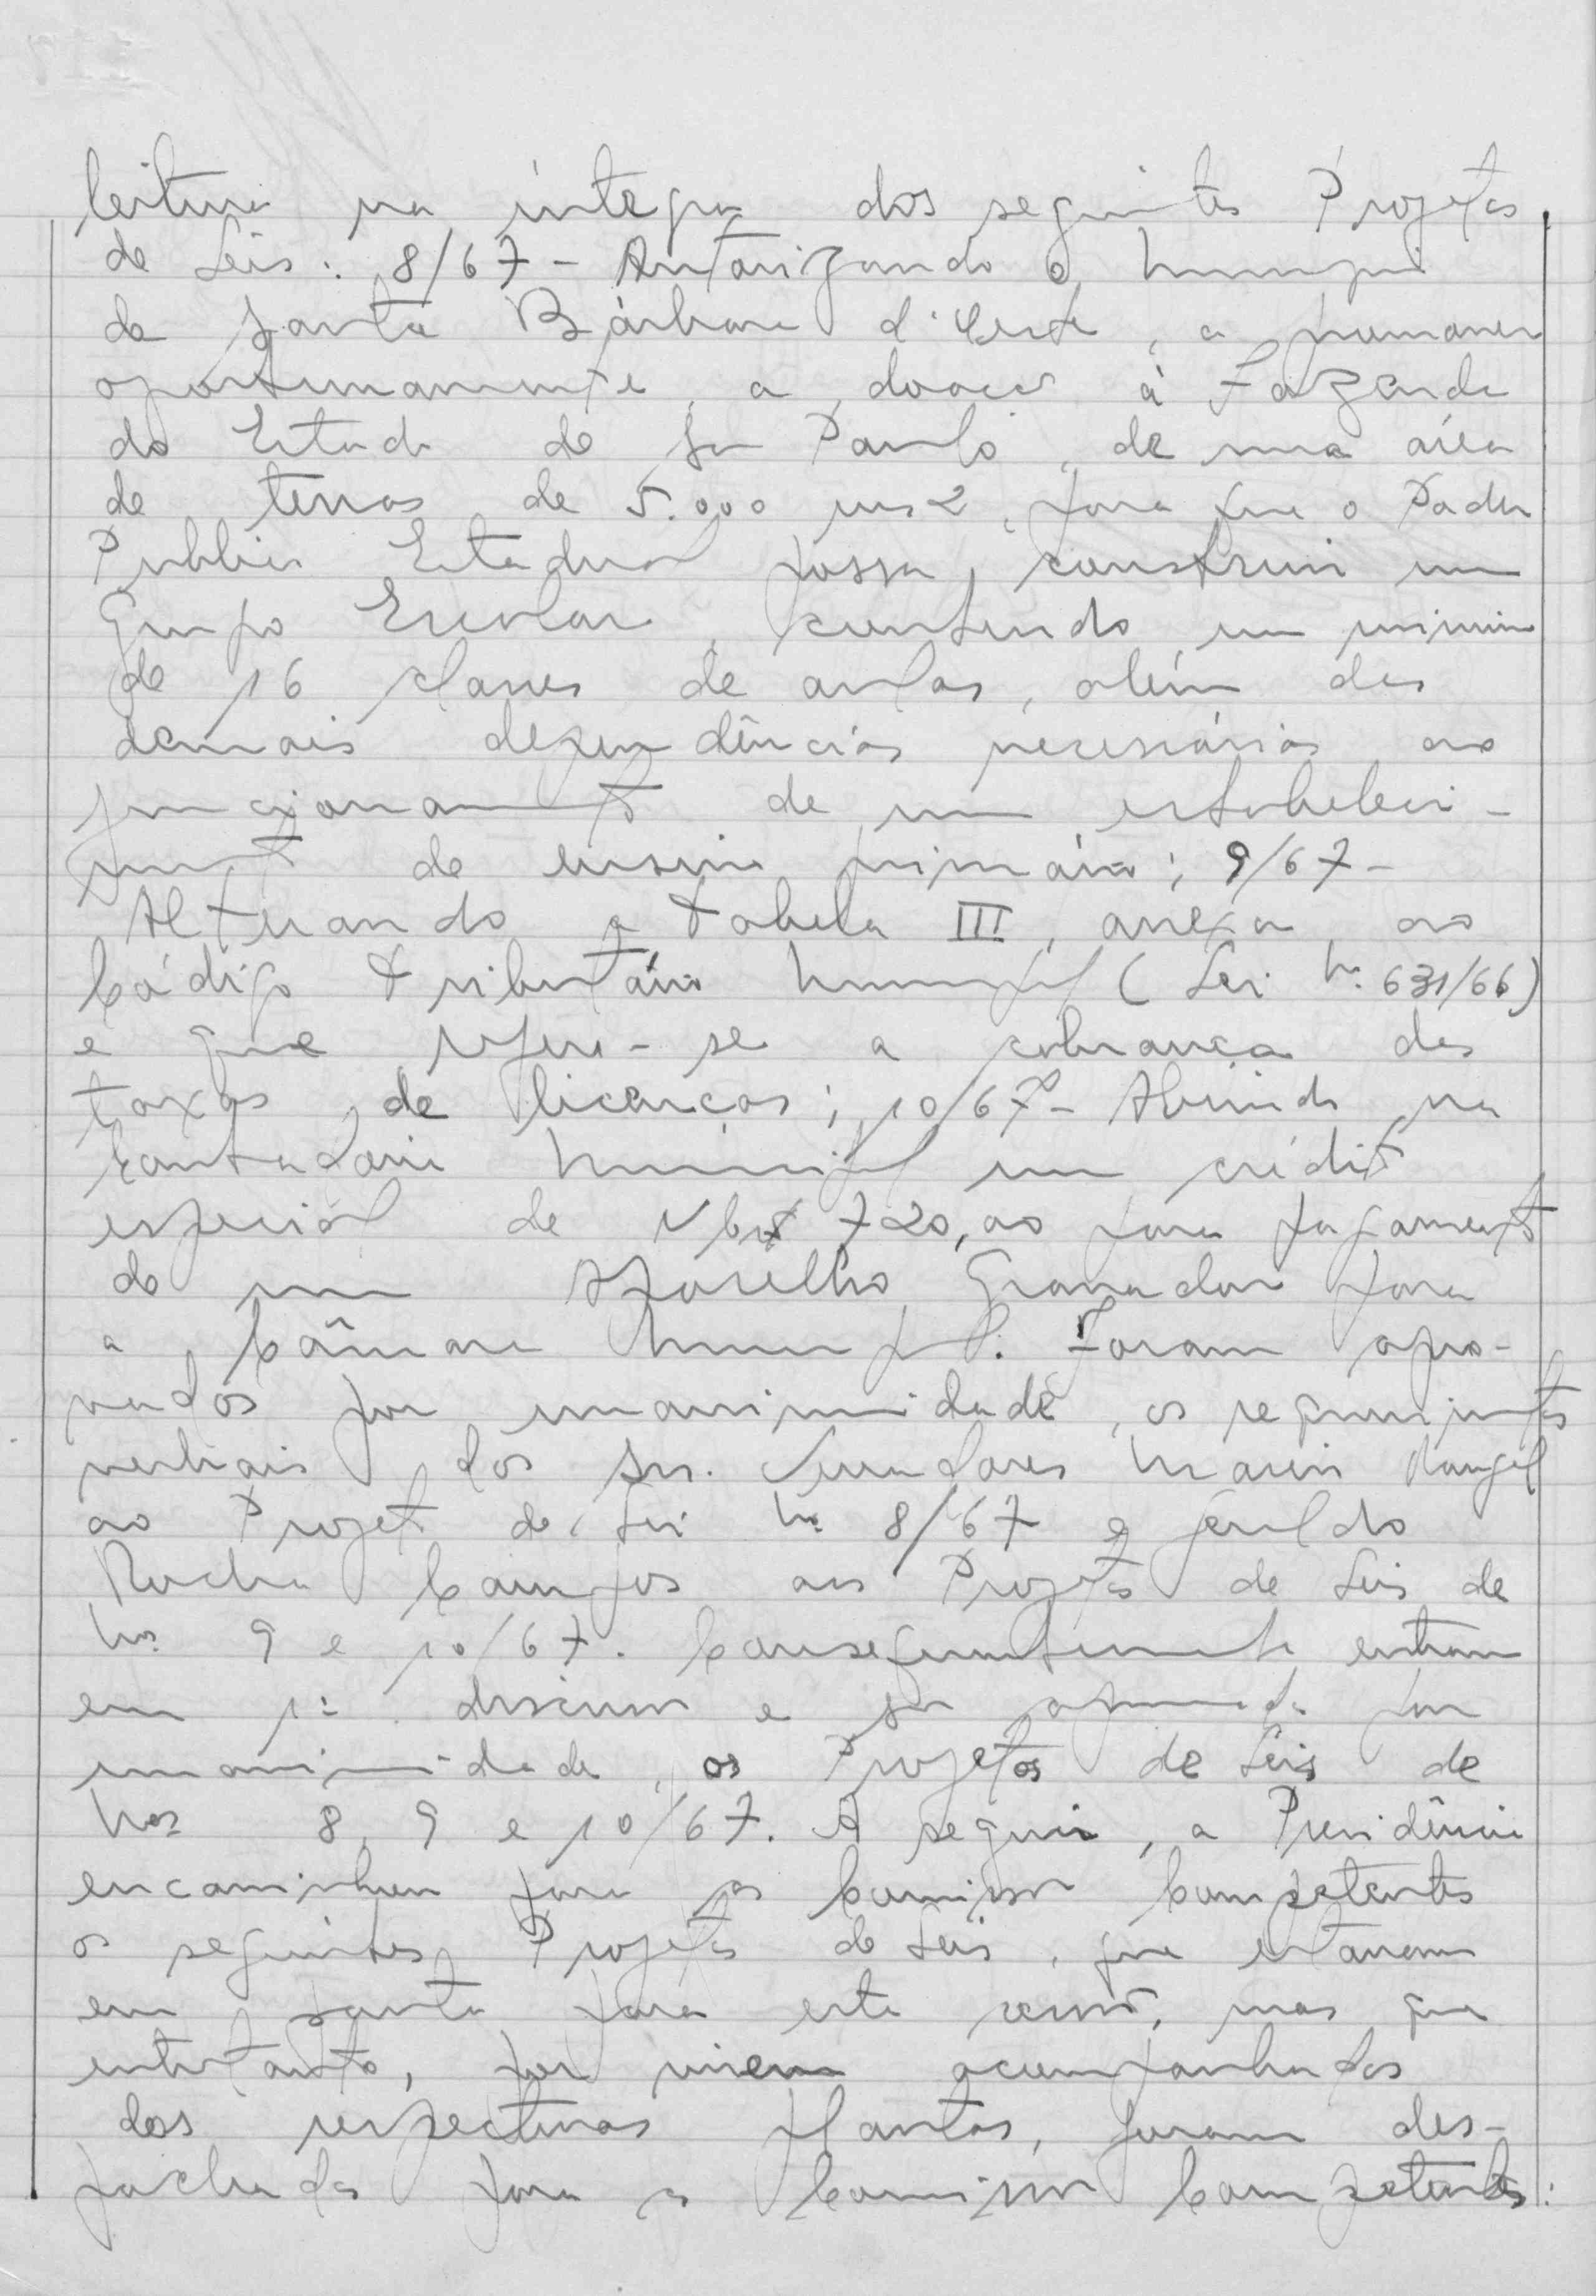 leitura na íntegra dos seguintes Projetos
de Leis: 8/67 - Autorizando o Município
de Santa Bárbara d'Oeste, a promover
oportunamente, a doação à Fazenda
do Estado de São Paulo, de uma área
de terras de 5.000 ms2, para que o Poder
Publico Estadual possa, construir um
Grupo Escolar, contendo um minimo
de 16 classes de aulas, além das
demais dependências necessárias ao
funcionamento de um estabeleci-
mento de ensino primário; 9/67 -
Alterando a tabela III, anexa, ao
Código tributário Municipal (Lei nº 631/66)
e que refere-se a cobrança das
taxas de licenças; 10/67 - Abrindo na
Contadoria Municipal um crédito
especial de NCr$ 720,00 para pagamento
de um Aparelho Gravador para
a Câmara Municipal. Foram apro-
vados por unanimidade, os requerimentos
verbais dos Srs. Vereadores Mario Rangel
ao Projeto de Lei nº 8/67 e Geraldo
Rocha Campos aos Projetos de Leis de
nºs 9 e 10/67. Conseguentemente entram
em 1ª discussão e são aprovados por
unanimidade, os Projetos de Leis de
nºs 8, 9 e 10/67. A seguir, a Presidência
encaminhou para as Comissões Competentes
os seguintes Projetos de Leis, que estavam
em pauta para esta sessão, mas que
entretanto, por virem acompanhados
dos respectivos plantas, foram des-
pachados para as Comissões Competentes: